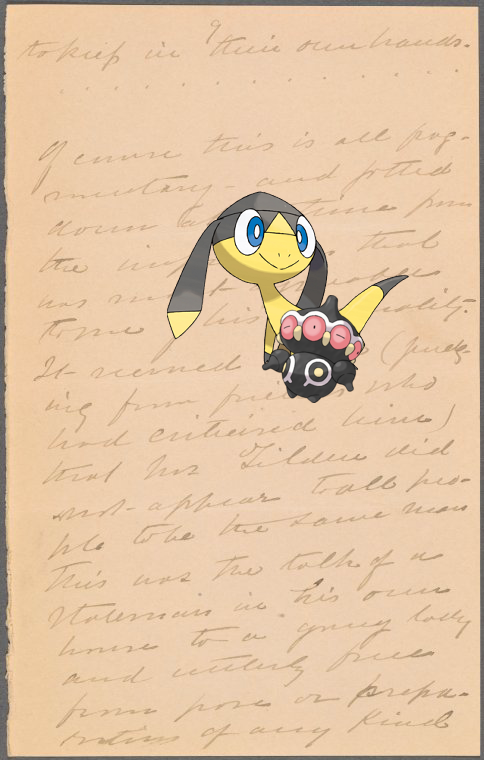 9
to keep in their own hands.
. . . . . . . . . . .
Of course this is all frag-
mentary - and jotted
down at time from
the that
has most
to me his quality.
It seemed (judg-
ing from friends who
had criticised him)
that Mr Tilden did
not appear to all peo-
ple to be the same man
this was the talk of a
Statesman in his own
house to a young lady
and utterly free
from pose or prepa-
ration of any kind